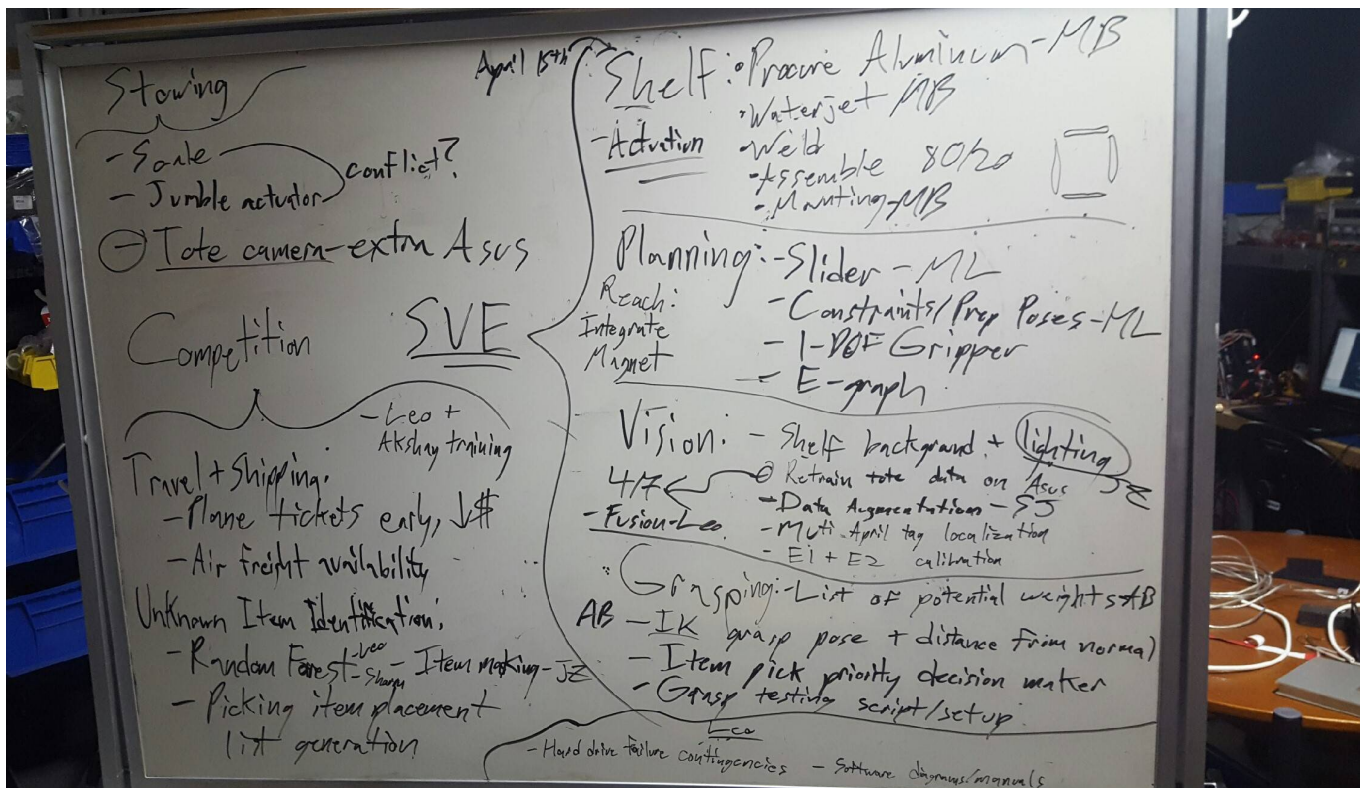 Stowing
- Scale
- Jumble actuator
conflict?
- Tote camera - extra Asus
Competition
- Leo +
Akshay training
Travel + Shipping:
- Plane tickets early, ↓$
- Air freight availability
Unknown Item Identification:
- Random Forest - Leo - Item making - JZ
- Picking item placement
list generation
SVE
April 15th
Shelf: • Procure Aluminum - MB
- Actuation
• Waterjet MB
• Weld
• Assemble 80/20
• Munting - MB
Planning: - Slider - ML
Reach:
Integrate
Magnet
- Constraints/Prep Poses - ML
- 1-DOF Gripper
- E-graph
Vision: - Shelf background + lighting
JZ
4/7
- Retrain tote data on Asus
- Fusion - Leo
- Data Augmentation - SJ
- Muti April tag localization
- E1 + E2 calibration
Grasping: - List of potential weights - AB
AB - IK grasp pose + distance from normal)
- Item pick priority decision maker
- Grasp testing script/setup
Leo
- Hard drive failure contingencies - Software diagrams/manuals